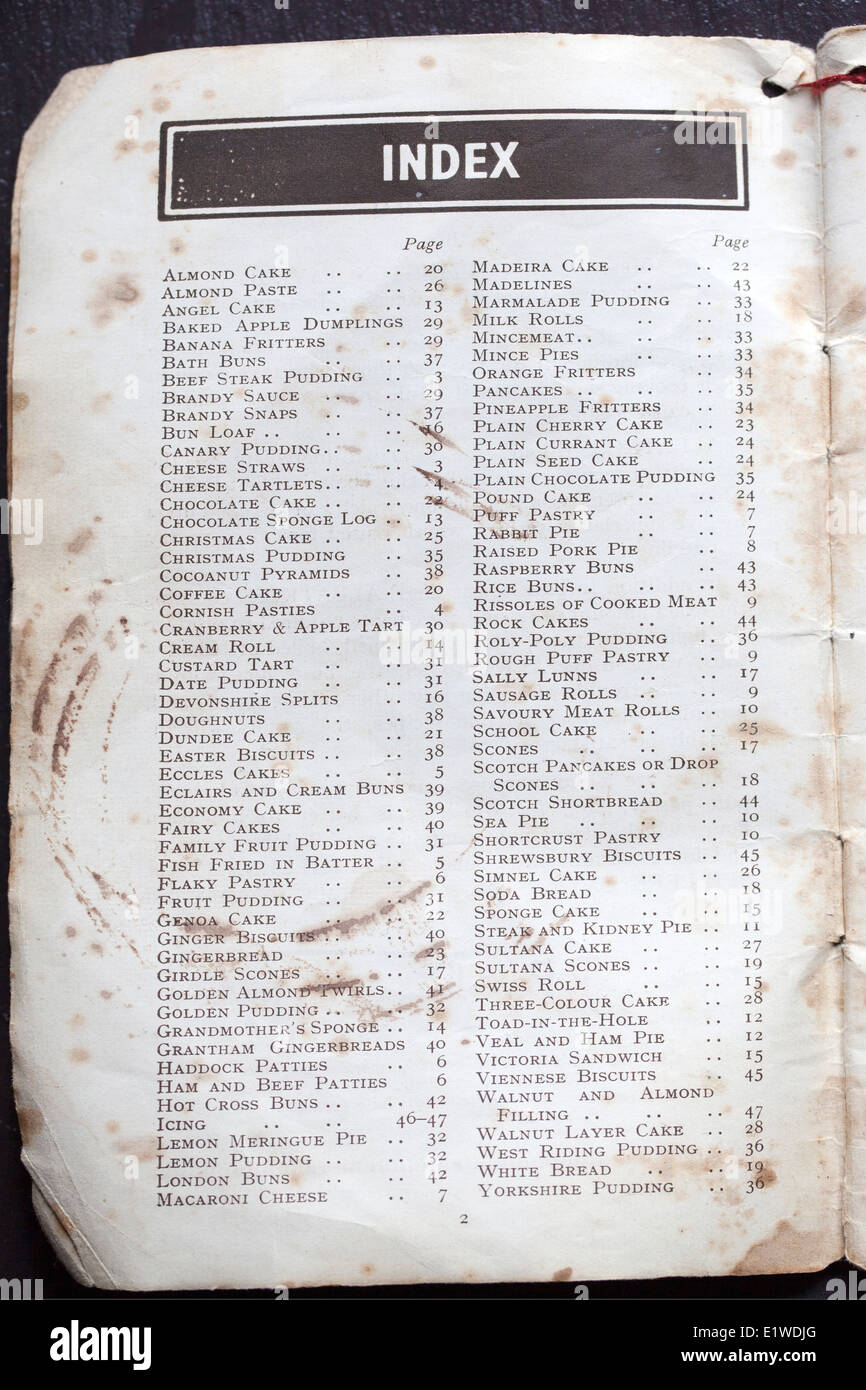 INDEX
Page
ALMOND CAKE .. .. 20
ALMOND PASTE .. .. 26
ANGEL CAKE .. .. 13
BAKED APPLE DUMPLINGS 29
BANANA FRITTERS .. 29
BATH BUNS .. .. 37
BEEF STEAK PUDDING .. 3
BRANDY SAUCE .. .. 29
BRANDY SNAPS .. .. 37
BUN LOAF .. .. .. 16
CANARY PUDDING .. .. 30
CHEESE STRAWS .. .. 3
CHEESE TARTLETS .. .. 4
CHOCOLATE CAKE .. .. 22
CHOCOLATE SPONGE LOG .. 13
CHRISTMAS CAKE .. .. 25
CHRISTMAS PUDDING .. 35
COCOANUT PYRAMIDS .. 38
COFFEE CAKE .. .. 20
CORNISH PASTIES .. 4
CRANBERRY & APPLE TART 30
CREAM ROLL .. .. 14
CUSTARD TART .. .. 31
DATE PUDDING .. .. 31
DEVONSHIRE SPLITS .. 16
DOUGHNUTS .. .. 38
DUNDEE CAKE .. .. 21
EASTER BISCUITS .. .. 38
ECCLES CAKES .. .. 5
ECLAIRS AND CREAM BUNS 39
ECONOMY CAKE .. .. 39
FAIRY CAKES .. .. 40
FAMILY FRUIT PUDDING .. 31
FISH FRIED IN BATTER .. 5
FLAKY PASTRY .. .. 6
FRUIT PUDDING .. .. 31
GENOA CAKE .. .. 22
GINGER BISCUITS .. .. 40
GINGERBREAD .. .. 23
GIRDLE SCONES .. .. 17
GOLDEN ALMOND TWIRLS .. 41
GOLDEN PUDDING .. .. 32
GRANDMOTHER'S SPONGE .. 14
GRANTHAM GINGERBREADS 40
HADDOCK PATTIES .. 6
HAM AND BEEF PATTIES 6
HOT CROSS BUNS .. .. 42
ICING .. .. 46-47
LEMON MERINGUE PIE .. 32
LEMON PUDDING .. .. 32
LONDON BUNS .. .. 42
MACARONI CHEESE .. 7
Page
MADEIRA CAKE .. .. 22
MADELINES .. .. 43
MARMALADE PUDDING .. 33
MILK ROLLS .. .. 18
MINCEMEAT .. .. .. 33
MINCE PIES .. .. 33
ORANGE FRITTERS .. 34
PANCAKES .. .. .. 35
PINEAPPLE FRITTERS .. 34
PLAIN CHERRY CAKE .. 23
PLAIN CURRANT CAKE .. 24
PLAIN SEED CAKE .. 24
PLAIN CHOCOLATE PUDDING 35
POUND CAKE .. .. 24
PUFF PASTRY .. .. 7
RABBIT PIE .. .. 7
RAISED PORK PIE .. 8
RASPBERRY BUNS .. 43
RICE BUNS .. .. .. 43
RISSOLES OF COOKED MEAT 9
ROCK CAKES .. .. 44
ROLY-POLY PUDDING .. 36
ROUGH PUFF PASTRY .. 9
SALLY LUNNS .. .. 17
SAUSAGE ROLLS .. .. 9
SAVOURY MEAT ROLLS .. 10
SCHOOL CAKE .. .. 25
SCONES .. .. .. 17
SCOTCH PANCAKES OR DROP
SCONES .. .. .. 18
SCOTCH SHORTBREAD .. 44
SEA PIE .. .. .. 10
SHORTCRUST PASTRY .. 10
SHREWSBURY BISCUITS .. 45
SIMNEL CAKE .. .. 26
SODA BREAD .. .. 18
SPONGE CAKE .. .. 15
STEAK AND KIDNEY PIE .. 11
SULTANA CAKE .. .. 27
SULTANA SCONES .. .. 19
SWISS ROLL .. .. 15
THREE-COLOUR CAKE .. 28
TOAD-IN-THE-HOLE .. 12
VEAL AND HAM PIE .. 12
VICTORIA SANDWICH .. 15
VIENNESE BISCUITS .. 45
WALNUT AND ALMOND
FILLING .. .. .. 47
WALNUT LAYER CAKE .. 28
WEST RIDING PUDDING .. 36
WHITE BREAD .. .. 19
YORKSHIRE PUDDING .. 36
2
alamy
Image ID: E1WDJG
www.alamy.com